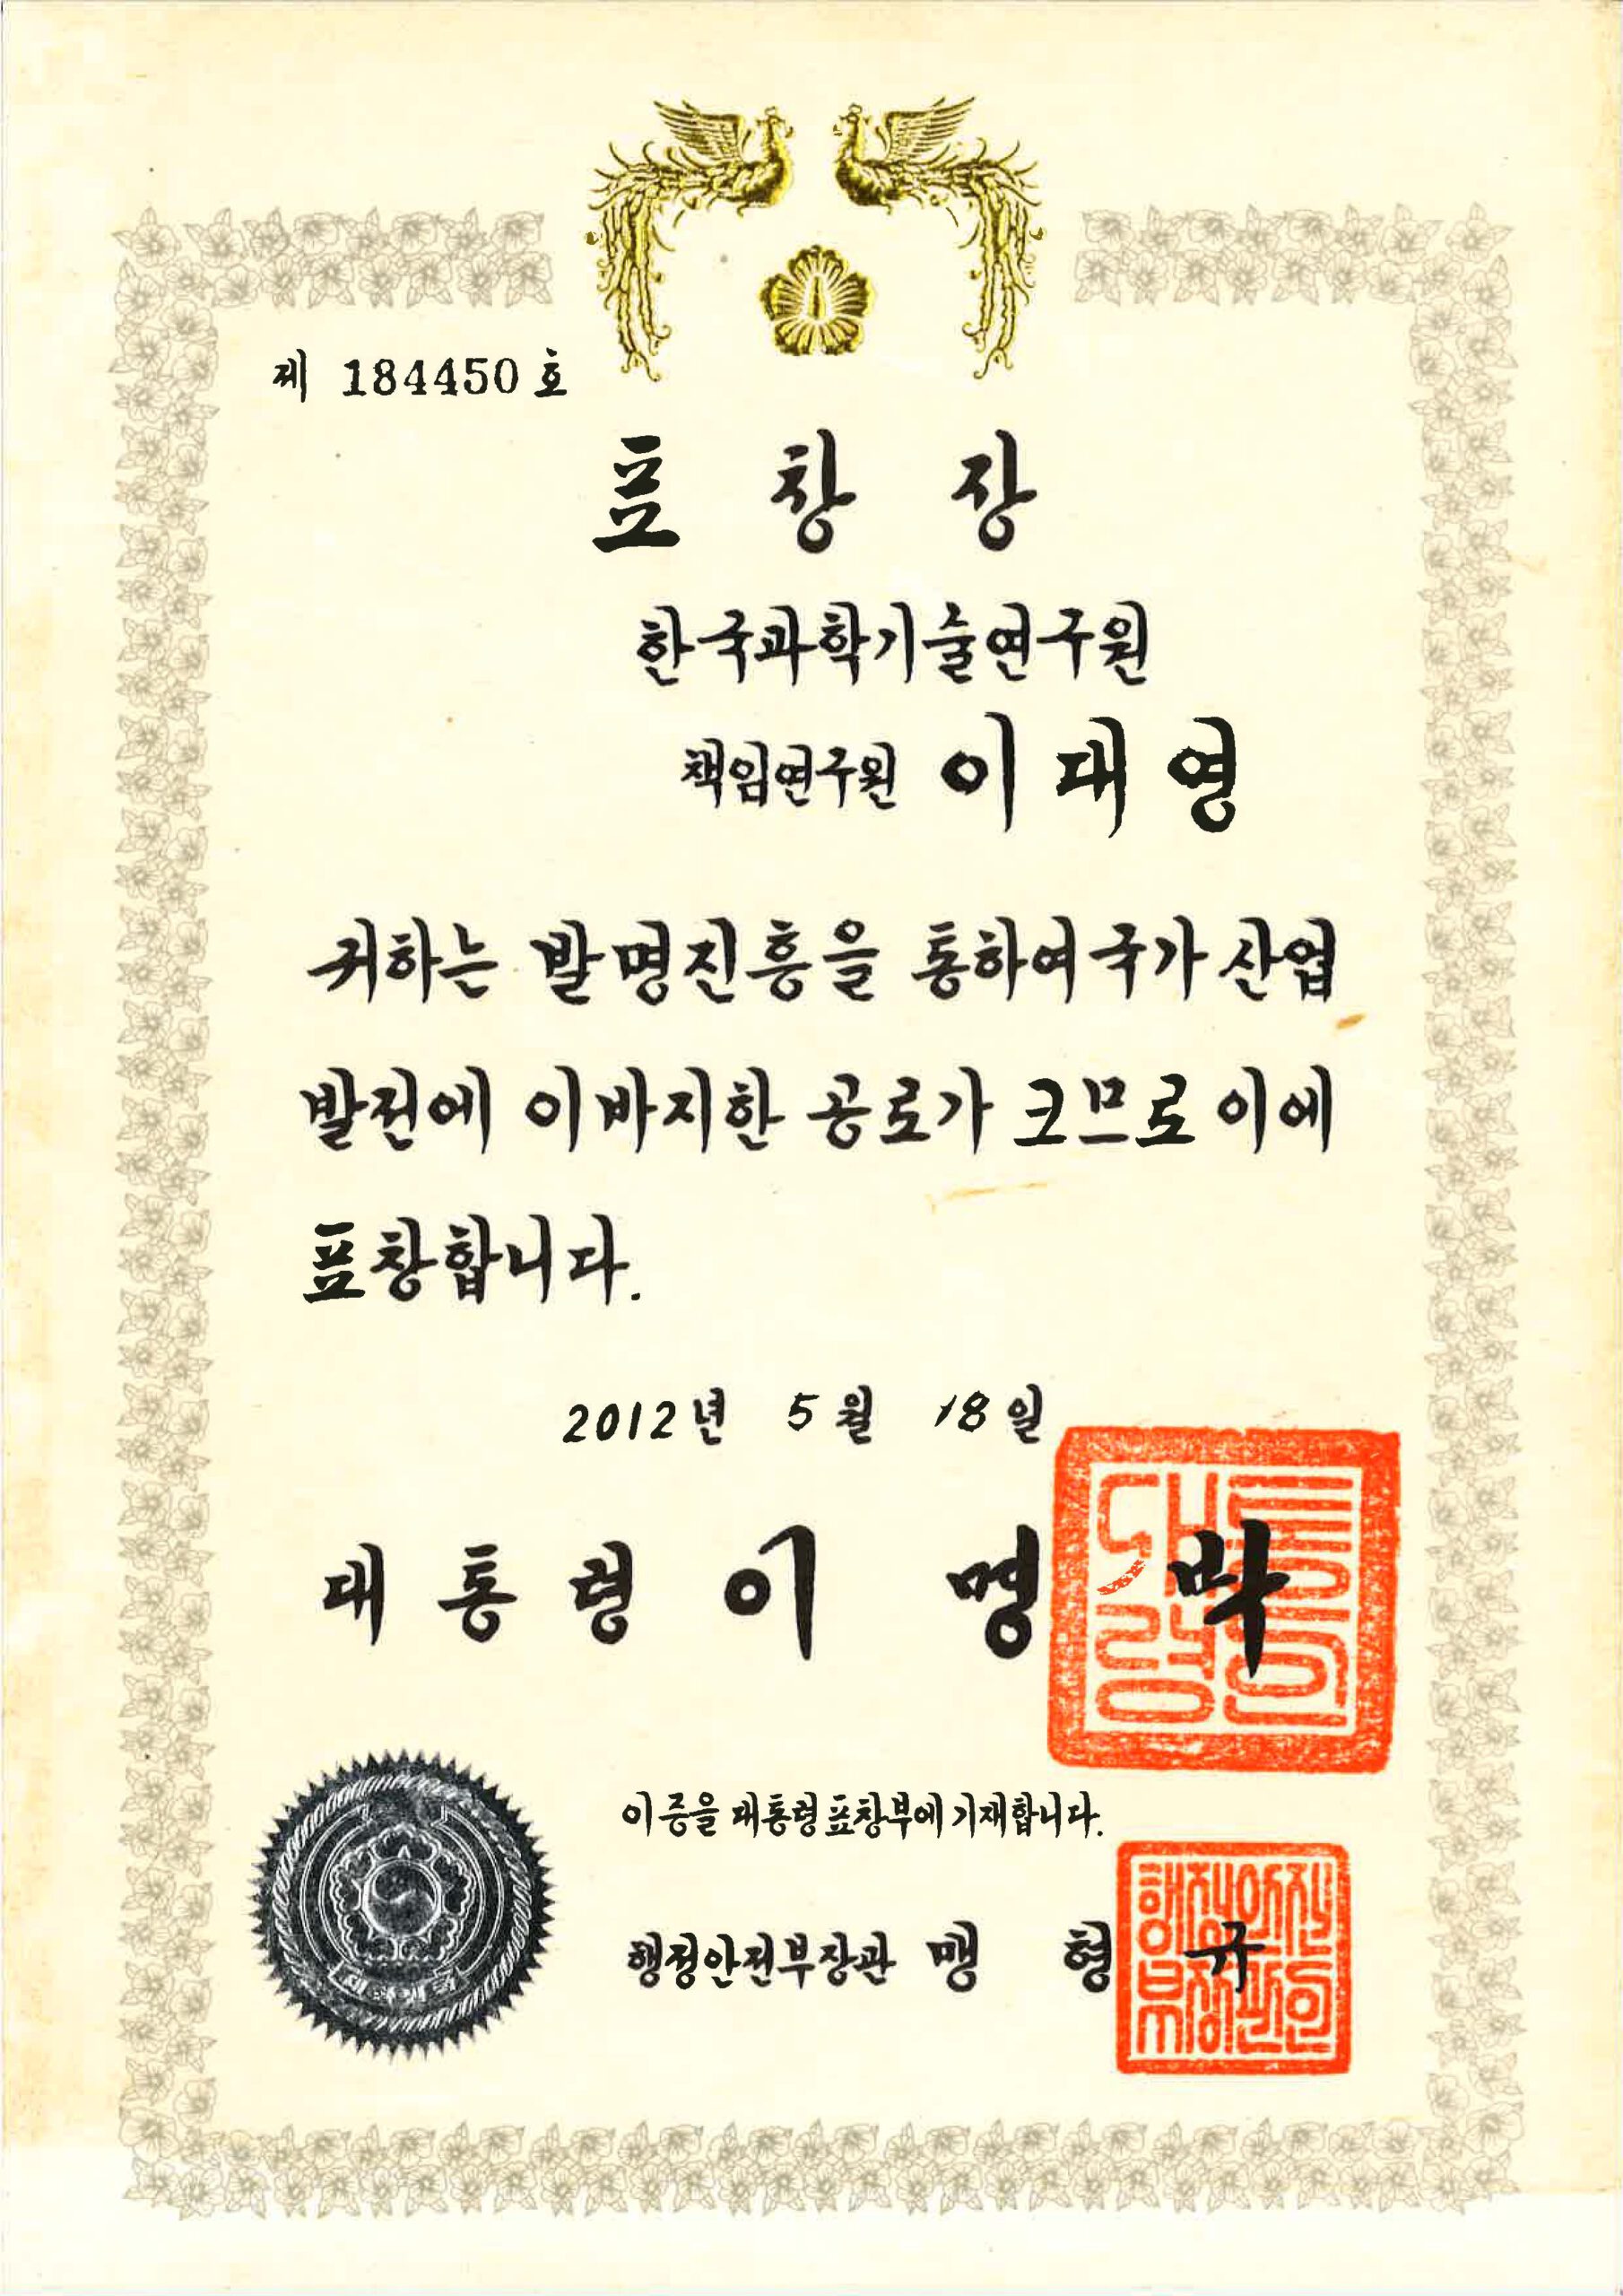 제 184450 호
표 창 장
한국과학기술연구원
책임연구원 이 대 영
귀하는 발명진흥을 통하여 국가 산업
발전에 이바지한 공로가 크므로 이에
표창합니다.
2012년 5월 18일
대 통 령 이 명 박
대통령인
이 증을 대통령 표창부에 기재합니다.
행정안전부장관 맹 형 규
행정안전부장관인